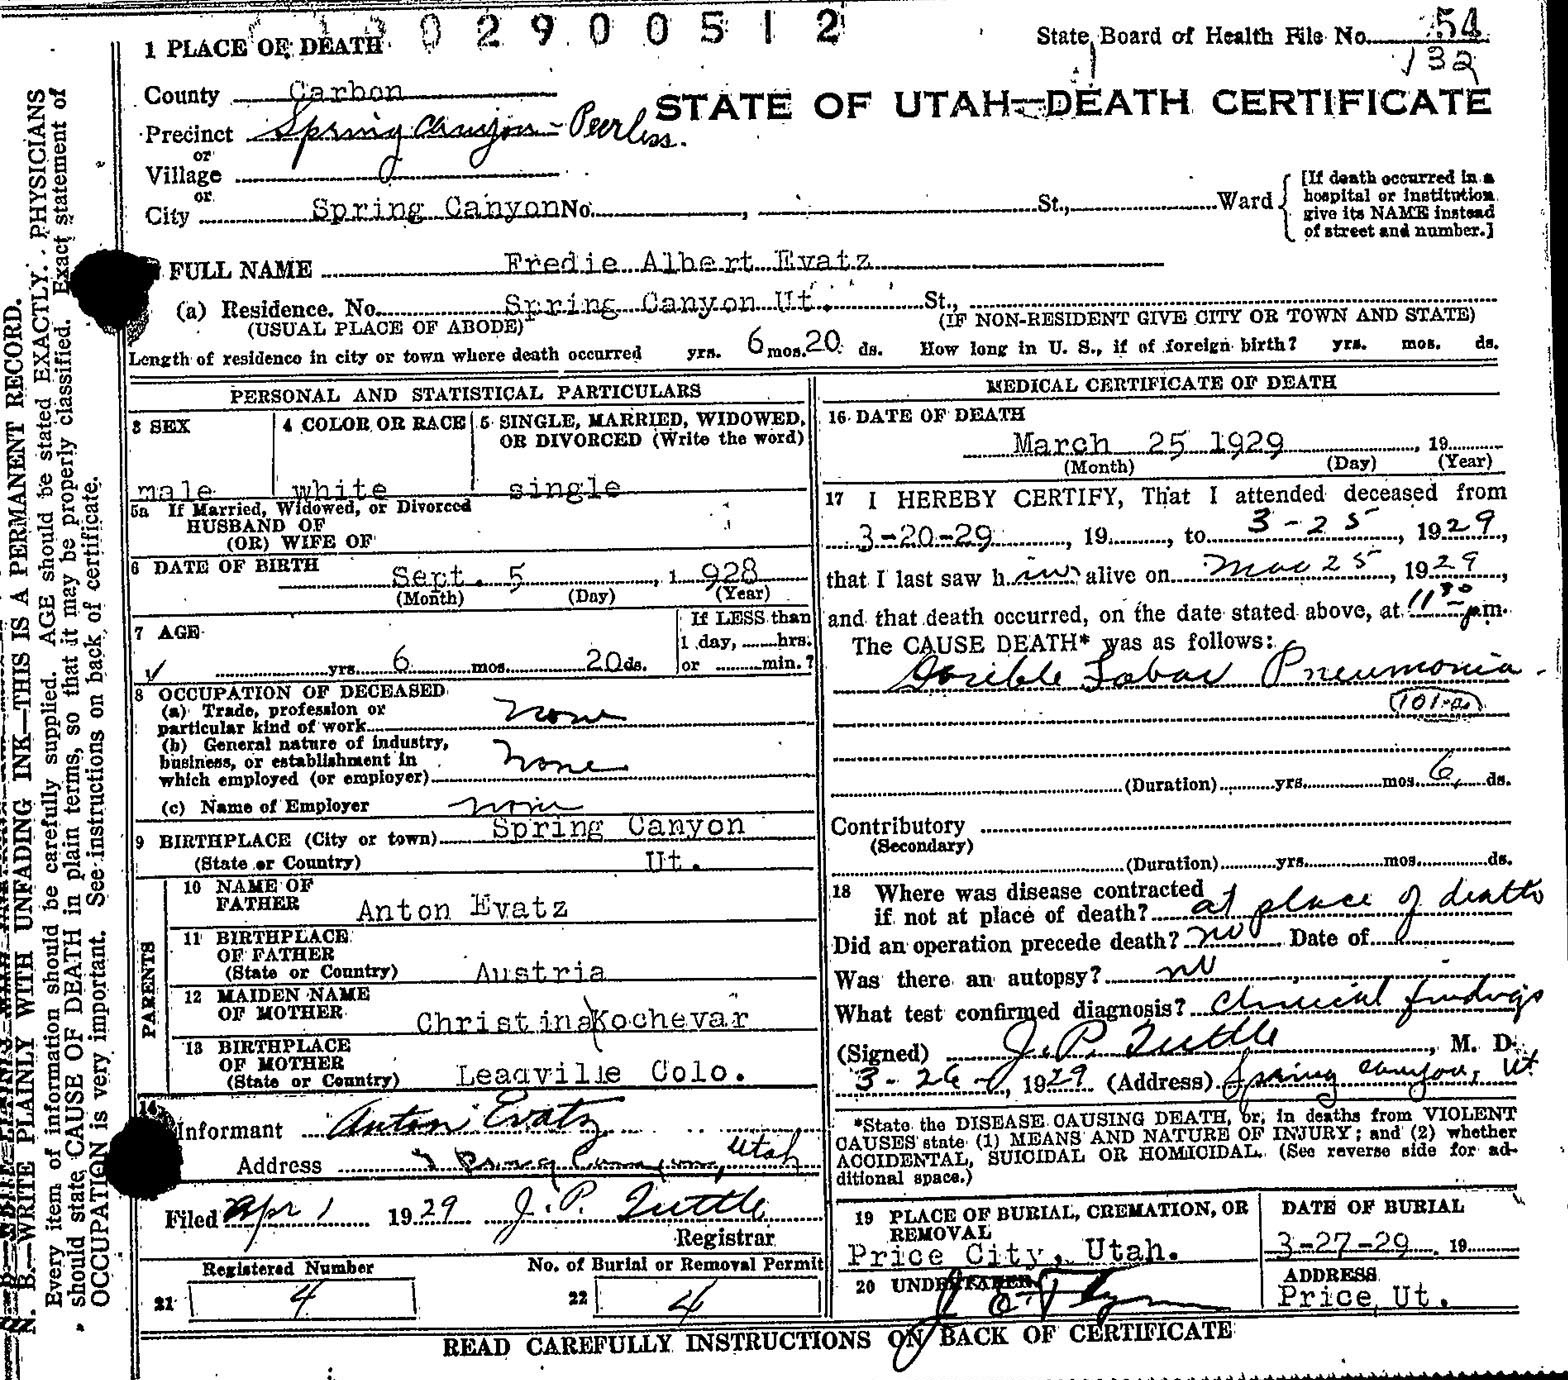 0 2 9 0 0 5 1 2
1 PLACE OF DEATH
State Board of Health File No. 54
132
County Carbon
STATE OF UTAH—DEATH CERTIFICATE
Precinct Spring Canyon - Peerless.
or
Village
or
City Spring Canyon No. , St., Ward
[If death occurred in a hospital or institution give its NAME instead of street and number.]
FULL NAME Fredie Albert Evatz
(a) Residence. No. Spring Canyon Ut. St.,
(USUAL PLACE OF ABODE) (IF NON-RESIDENT GIVE CITY OR TOWN AND STATE)
Length of residence in city or town where death occurred yrs. 6 mos. 20 ds. How long in U. S., if of foreign birth? yrs. mos. ds.
PERSONAL AND STATISTICAL PARTICULARS
3 SEX
male
4 COLOR OR RACE
white
5 SINGLE, MARRIED, WIDOWED,
OR DIVORCED (Write the word)
single
5a If Married, Widowed, or Divorced
HUSBAND OF
(OR) WIFE OF
6 DATE OF BIRTH Sept. 5 , 1 928
(Month) (Day) (Year)
7 AGE
yrs 6 mos. 20 ds.
If LESS than
1 day, hrs.
or min.?
8 OCCUPATION OF DECEASED
(a) Trade, profession or
particular kind of work none
(b) General nature of industry,
business, or establishment in
which employed (or employer) none
(c) Name of Employer none
9 BIRTHPLACE (City or town) Spring Canyon
(State or Country) Ut.
PARENTS
10 NAME OF
FATHER Anton Evatz
11 BIRTHPLACE
OF FATHER
(State or Country) Austria
12 MAIDEN NAME
OF MOTHER Christina Kochevar
13 BIRTHPLACE
OF MOTHER
(State or Country) Leadville Colo.
14
Informant Anton Evatz
Address Spring Canyon, Utah
Filed Apr 1 1929 J. P. Tuttle
Registrar
Registered Number
21 4
No. of Burial or Removal Permit
22 4
MEDICAL CERTIFICATE OF DEATH
16 DATE OF DEATH
March 25 1929 , 19
(Month) (Day) (Year)
17 I HEREBY CERTIFY, That I attended deceased from
3-20-29 , 19 , to 3-25 , 1929,
that I last saw him alive on Mar 25 , 1929,
and that death occurred, on the date stated above, at 11 30 pm.
The CAUSE DEATH* was as follows:
Lobar Pneumonia
101-a
(Duration) yrs. mos. 6 ds.
Contributory
(Secondary)
(Duration) yrs. mos. ds.
18 Where was disease contracted
if not at place of death? at place of death
Did an operation precede death? no Date of
Was there an autopsy? no
What test confirmed diagnosis? Clinical findings
(Signed) J. P. Tuttle , M. D.
3-26- , 1929 (Address) Spring Canyon, Ut
*State the DISEASE CAUSING DEATH, or, in deaths from VIOLENT
CAUSES state (1) MEANS AND NATURE OF INJURY; and (2) whether
ACCIDENTAL, SUICIDAL OR HOMICIDAL. (See reverse side for ad-
ditional space.)
19 PLACE OF BURIAL, CREMATION, OR
REMOVAL
Price City, Utah.
DATE OF BURIAL
3-27-29 , 19
20 UNDERTAKER
J. E. Flynn
ADDRESS
Price Ut.
READ CAREFULLY INSTRUCTIONS ON BACK OF CERTIFICATE
N. B.—WRITE PLAINLY WITH UNFADING INK—THIS IS A PERMANENT RECORD.
Every item of information should be carefully supplied. AGE should be stated EXACTLY. PHYSICIANS
should state CAUSE OF DEATH in plain terms, so that it may be properly classified. Exact statement of
OCCUPATION is very important. See instructions on back of certificate.